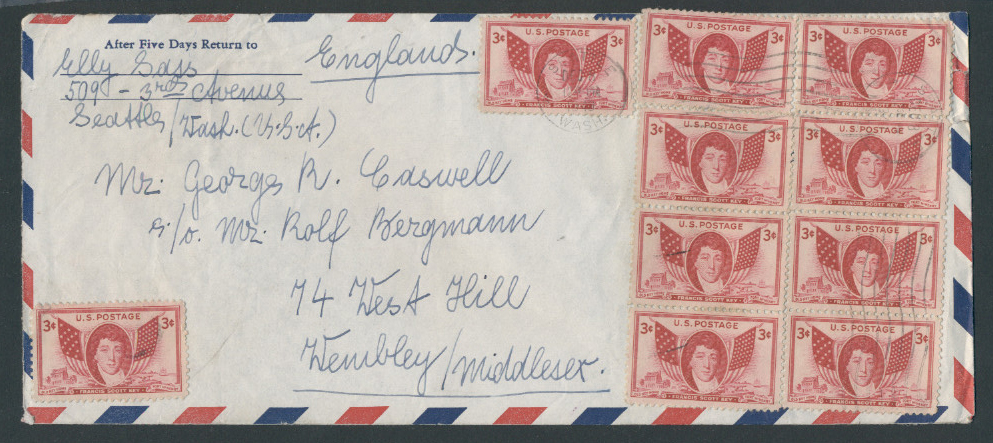 After Five Days Return to
Elly Sass
509 - 3rd Avenue
Seattle/Wash. (U.S.A.)
England.
Mr. George R. Caswell
c/o. Mr. Rolf Bergmann
74 West Hill
Wembley/Middlesex.
3¢ U.S. POSTAGE 3¢
FRANCIS SCOTT KEY
WASH.
U.S. POSTAGE
3¢ 3¢
FRANCIS SCOTT KEY
U.S. POSTAGE
3¢ 3¢
FRANCIS SCOTT KEY
U.S. POSTAGE
3¢ 3¢
FRANCIS SCOTT KEY
U.S. POSTAGE
3¢ 3¢
FRANCIS SCOTT KEY
U.S. POSTAGE
3¢ 3¢
FRANCIS SCOTT KEY
U.S. POSTAGE
3¢ 3¢
FRANCIS SCOTT KEY
U.S. POSTAGE
3¢ 3¢
FRANCIS SCOTT KEY
U.S. POSTAGE
3¢ 3¢
FRANCIS SCOTT KEY
U.S. POSTAGE
3¢ 3¢
FRANCIS SCOTT KEY